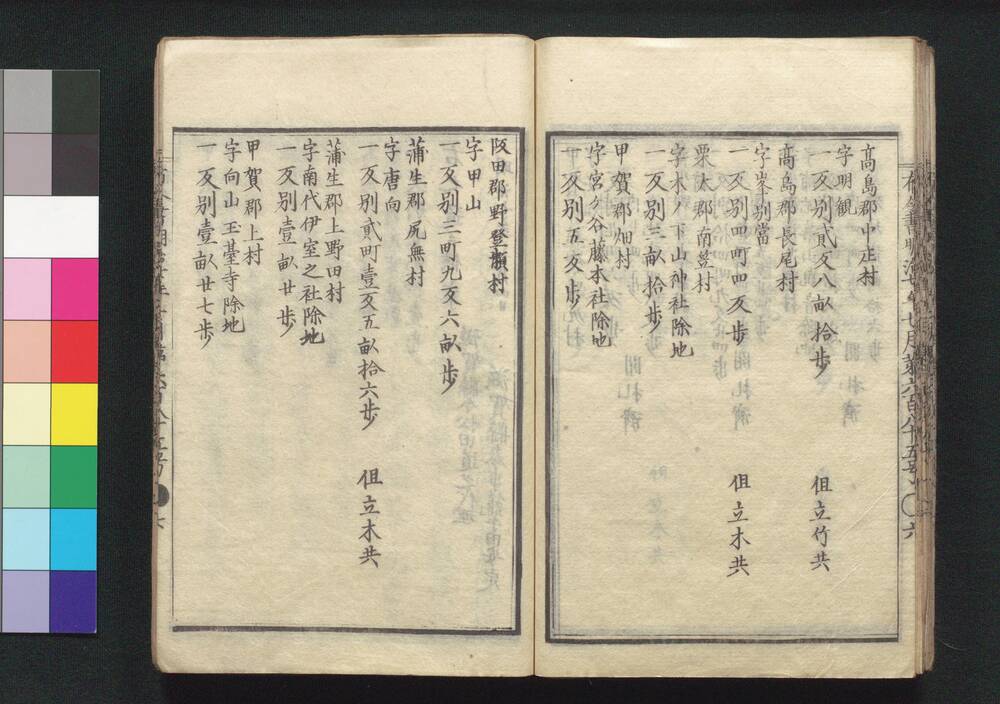 髙島郡中正村
字明観
一反別貳反八畝拾歩　但立竹共
髙島郡長尾村
字峯別當
一反別四町四反歩　但立木共
栗太郡南笠村
字木ノ下山神社除地
一反別三畝拾歩
甲賀郡畑村
字宮ケ谷藤本社除地
一反別五反歩
阪田郡野登瀬村
字甲山
一反別三町九反六畝歩
蒲生郡尻無村
字唐向
一反別貳町壹反五畝拾六歩　但立木共
蒲生郡上野田村
字南代伊室之社除地
一反別壹畝廿歩
甲賀郡上村
字向山玉䑓寺除地
一反別壹畝廿七歩